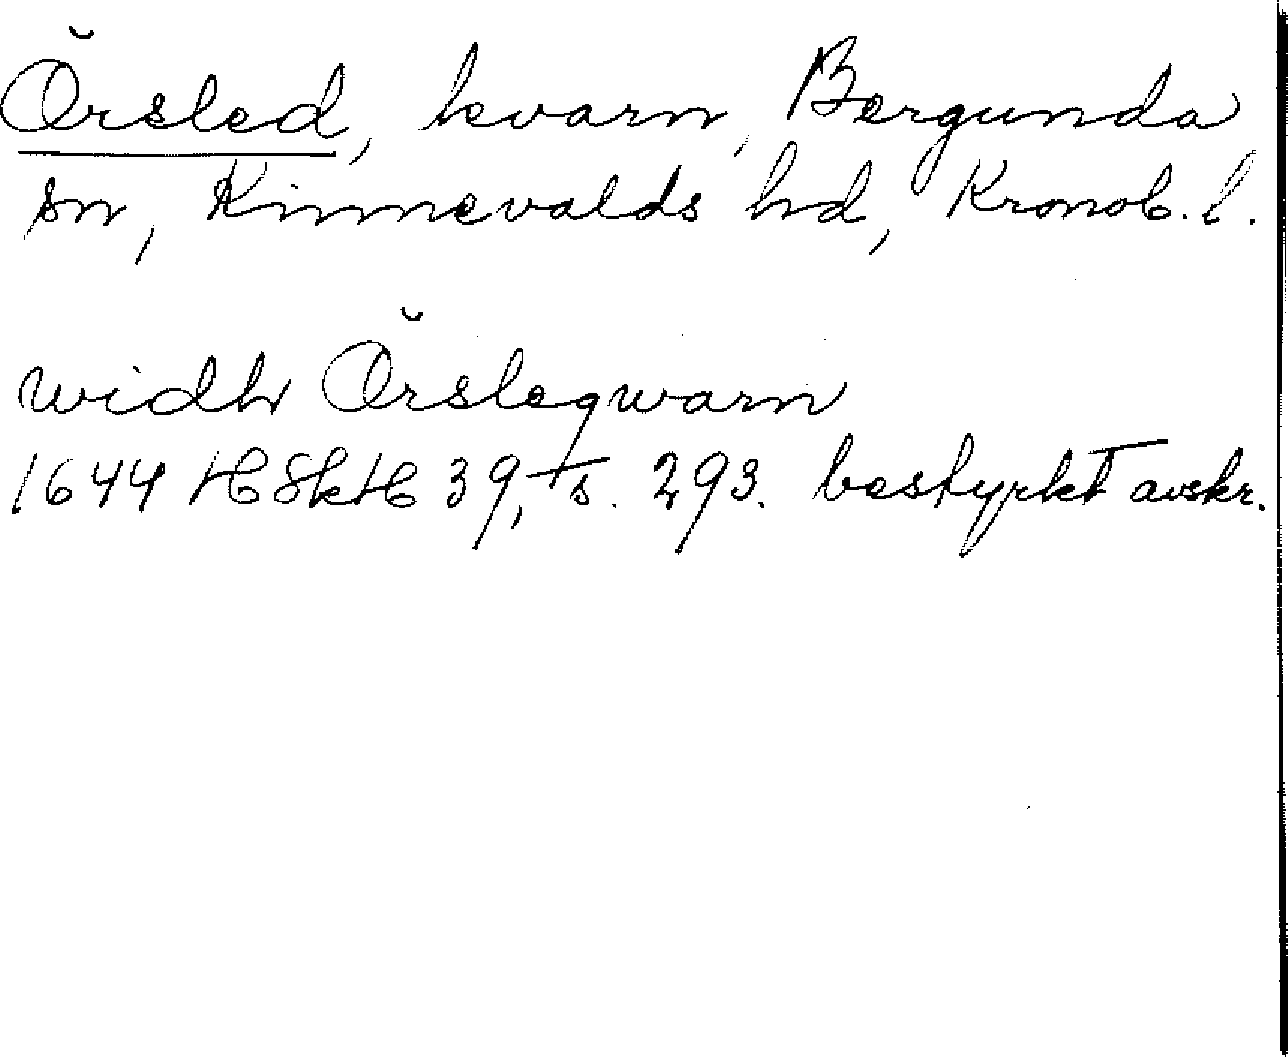 Örsled, kvarn, Bergunda
sn, Kinnevalds hd, Kronob. l.
widh Örslegwarn
1644 HSkH 39, s. 293. bestyrkt avskr.